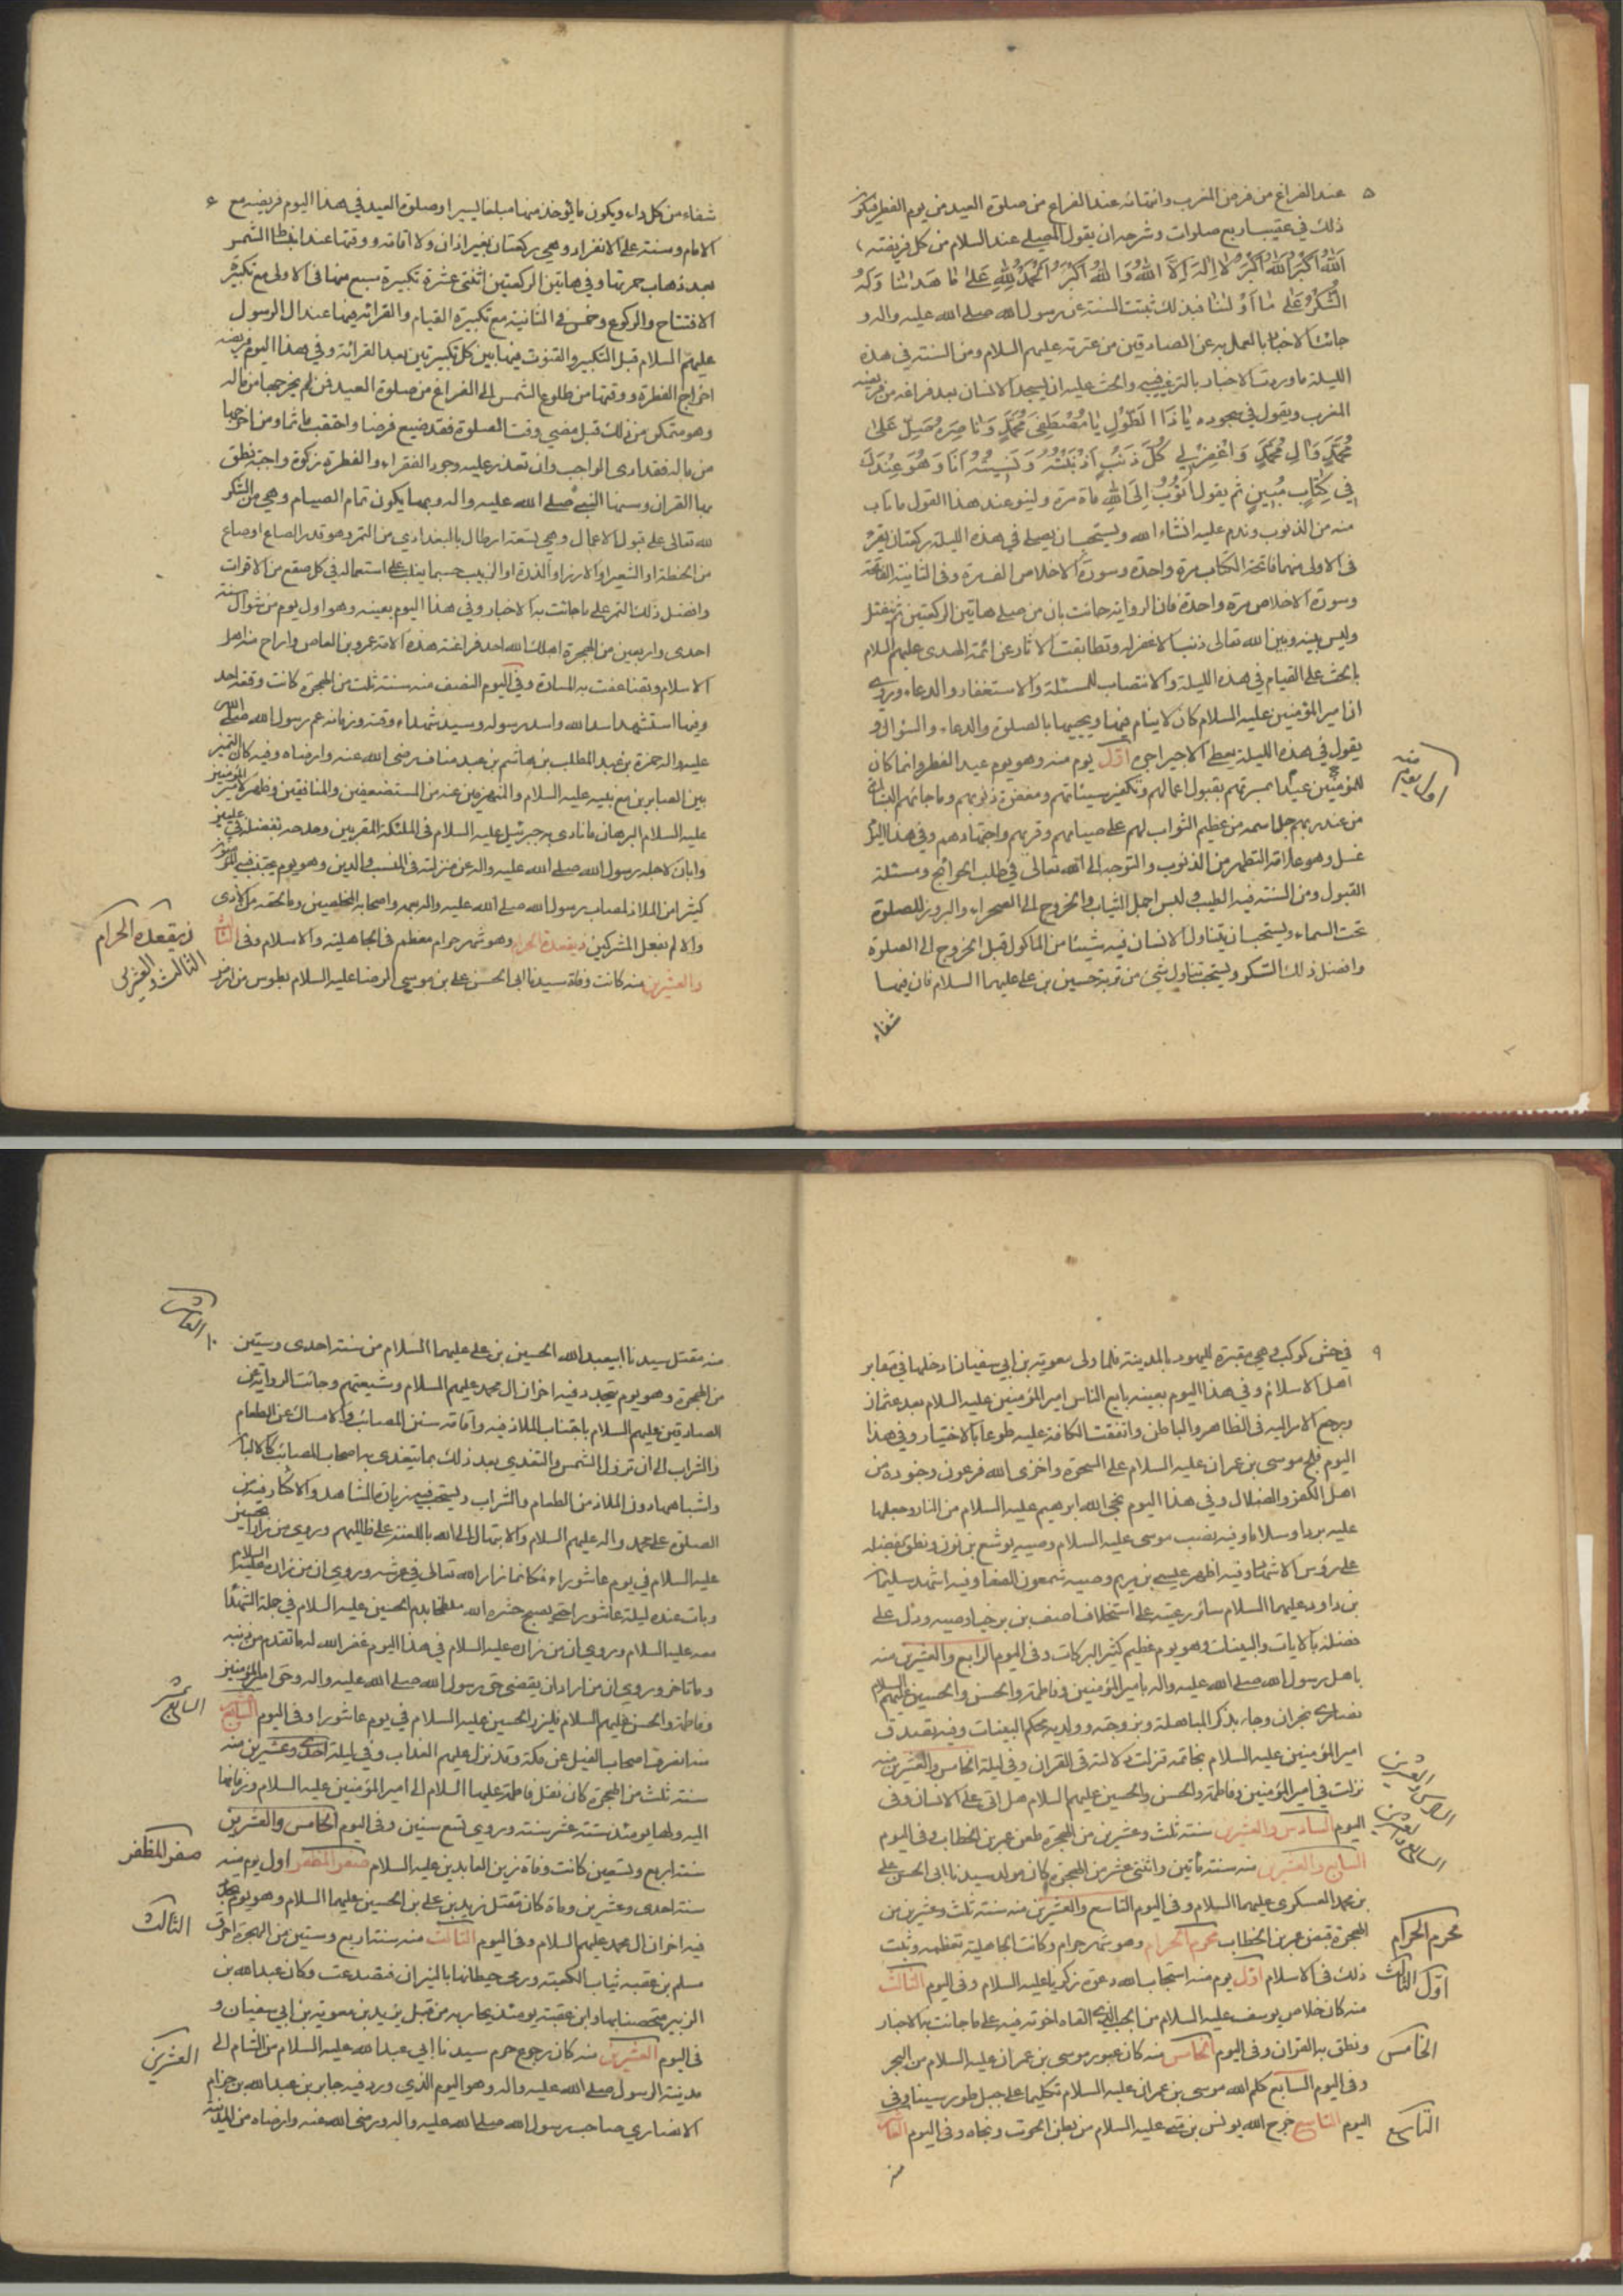 ٥
عند الفراغ من فرض المغرب وانتهائه عند الفراغ من صلوة العيد من يوم الفطر فيكون
ذلك في عقيب اربع صلوات وشرحه ان يقول المصلي عند السلام من كل فريضة
اَللّٰهُ اَكْبَرُ اَللّٰهُ اَكْبَرُ لا اِلٰهَ اِلَّا اللّٰهُ وَاللّٰهُ اَكْبَرُ اَلْحَمْدُ لِلّٰهِ عَلىٰ مٰا هَدٰانٰا وَلَهُ
الشُّكْرُ عَلىٰ مٰا اَوْلٰنٰا فبذلك ثبتت السنة عن رسول الله صلى الله عليه واله و
جائت الاخبار بالعمل به عن الصادقين من عترته عليهم السلام ومن السنة في هذه
الليلة ما وردت الاخبار بالترغيب فيه والحث عليه ان يسجد الانسان بعد فراغه من فريضة
المغرب ويقول في سجوده يٰا ذَا الطَّوْلِ يٰا مُصْطَفِيَ مُحَمَّدٍ وَنٰاصِرَهُ صَلِّ عَلىٰ
مُحَمَّدٍ وَاٰلِ مُحَمَّدٍ وَاغْفِرْ لي كُلَّ ذَنْبٍ اَذْنَبْتُهُ وَنَسيتُهُ اَنَا وَهُوَ عِنْدَكَ
في كِتٰابٍ مُبينٍ ثم يقول اَتُوبُ اِلَى اللّٰهِ ماة مرة ولينو عند هذا القول ما تاب
منه من الذنوب وندم عليه انشاء الله ويستحب ان يصلى في هذه الليلة ركعتان يقرء
في الاولى منهما فاتحة الكتاب مرة واحدة وسورة الاخلاص الف مرة وفي الثانية الفاتحة
وسورة الاخلاص مرة واحدة فان الرواية جائت بان من صلى هاتين الركعتين لم ينفتل
وليس بينه وبين الله تعالى ذنب الا غفر له وتطابقت الاثار عن ائمة الهدى عليهم السلام
بالحث على القيام في هذه الليلة والانتصاب للمسئلة والاستغفار والدعاء وروي
ان امير المؤمنين عليه السلام كان لا ينام فيها ويحييها بالصلوة والدعاء والسؤال و
يقول في هذه الليلة يعطى الاجير اجره اول يوم منه وهو يوم عيد الفطر وانما كان
للمؤمنين عيدا بمسرتهم بقبول اعمالهم وتكفير سيئاتهم ومغفرة ذنوبهم وما جائتهم البشارة
من عند ربهم جل اسمه من عظيم الثواب لهم على صيامهم وقربهم واجتهادهم وفي هذا اليوم
غسل وهو علامة التطهر من الذنوب والتوجه الى الله تعالى في طلب الحوائج ومسئلة
القبول ومن السنة فيه الطيب ولبس اجمل الثياب والخروج الى الصحراء والبروز للصلوة
تحت السماء ويستحب ان يتناول الانسان فيه شيئا من الماكول قبل الخروج الى الصلوة
وافضل ذلك السكر ويستحب تناول شيء من تربة حسين بن علي عليهما السلام فان فيها
شفاء
اول يوم منه
شفاء من كل داء ويكون ما يؤخذ منها مبلغا يسيرا وصلوة العيد في هذا اليوم فريضة مع
الامام وسنة على الانفراد وهي ركعتان بغير اذان ولا اقامة ووقتها عند انبساط الشمس
بعد ذهاب حمرتها وفي هاتين الركعتين اثنتي عشرة تكبيرة سبع منها في الاولى مع تكبيرة
الافتتاح والركوع وخمس في الثانية مع تكبيرة القيام والقرائة فيهما عند ال الرسول
عليهم السلام قبل التكبير والقنوت فيهما بين كل تكبيرتين بعد القرائة وفي هذا اليوم فريضة
اخراج الفطرة ووقتها من طلوع الشمس الى الفراغ من صلوة العيد فمن لم يخرجها من ماله
وهو متمكن من ذلك قبل مضي وقت الصلوة فقد ضيع فرضا واحتقب ماثما ومن اخرجها
من ماله فقد ادى الواجب وان تعذر عليه وجود الفقراء والفطرة زكوة واجبة نطق
بها القران وسنها النبي صلى الله عليه واله وبها يكون تمام الصيام وهي من الشكر
لله تعالى على قبول الاعمال وهي تسعة ارطال بالبغدادي من التمر وهو قدر الصاع او صاع
من الحنطة او الشعير او الارز او الذرة او الزبيب حسبما يغلب على استعماله في كل صقع من الاقوات
وافضل ذلك التمر على ما جائت به الاخبار وفي هذا اليوم بعينه وهو اول يوم من شوال سنة
احدى واربعين من الهجرة اهلك الله احد فراعنة هذه الامة عمرو بن العاص واراح منه اهل
الاسلام وتضاعفت به المسارة وفي اليوم النصف منه سنة ثلث من الهجرة كانت وقعة احد
وفيها استشهد اسد الله واسد رسوله وسيد شهداء وقته وزمانه عم رسول الله صلى الله
عليه واله حمزة بن عبد المطلب بن هاشم بن عبد مناف رضي الله عنه وارضاه وفيه كان التميز
بين الصابرين مع نبيه عليه السلام والمنهزمين عنه من المستضعفين والمنافقين وظهر لامير المؤمنين
عليه السلام البرهان ما نادى به جبرئيل عليه السلام في الملئكة المقربين ومدحه بفضله في عليين
وابان لاجله رسول الله صلى الله عليه واله عن منزلته في النسب والدين وهو يوم يجتنب فيه المؤمنون
كثيرا من الملاذ لمصاب رسول الله صلى الله عليه واله بعمه واصحابه المخلصين وما لحقه من الاذى
والالم بفعل المشركين ذيقعدة الحرام وهو شهر حرام معظم في الجاهلية والاسلام وفي الثالث
والعشرين منه كانت وفاة سيدنا ابي الحسن علي بن موسى الرضا عليه السلام بطوس من ارض
ذيقعدة الحرام
الثالث والعشرين
٩
في حش كوكب وهي مقبرة لليهود بالمدينة فلما ولى معوية بن ابي سفيان ادخلها في مقابر
اهل الاسلام وفي هذا اليوم بعينه بايع الناس امير المؤمنين عليه السلام بعد عثمان
ورجع الامر اليه في الظاهر والباطن واتفقت الكافة عليه طوعا بالاختيار وفي هذا
اليوم فلج موسى بن عمران عليه السلام على السحرة واخزى الله فرعون وجنوده من
اهل الكفر والضلال وفي هذا اليوم نجى الله ابرهيم عليه السلام من النار وجعلها
عليه بردا وسلاما وفيه نصب موسى عليه السلام وصيه يوشع بن نون ونطق بفضله
على رؤس الاشهاد وفيه اظهر عيسى بن مريم وصيه شمعون الصفا وفيه اشهد سليمان
بن داود عليهما السلام سائر رعيته على استخلاف اصف بن برخيا وصيه ودل على
فضله بالايات والبينات وهو يوم عظيم كثير البركات وفي اليوم الرابع والعشرين منه
باهل رسول الله صلى الله عليه واله بامير المؤمنين وفاطمة والحسن والحسين عليهم السلام
نصارى نجران وجاء بذكر المباهلة وبزوجته وولديه محكم البينات وفيه تصدق
امير المؤمنين عليه السلام بخاتمه فنزلت ولايته في القران وفي ليلة الخامس والعشرين منه
نزلت في امير المؤمنين وفاطمة والحسن والحسين عليهم السلام هل اتى على الانسان وفي
اليوم السادس والعشرين سنة ثلث وعشرين من الهجرة طعن عمر بن الخطاب وفي اليوم
السابع والعشرين منه سنة مأتين واثنتي عشر من الهجرة كان مولد سيدنا ابي الحسن علي
بن محمد العسكري عليهما السلام وفي اليوم التاسع والعشرين منه سنة ثلث وعشرين من
الهجرة قبض عمر بن الخطاب محرم الحرام وهو شهر حرام وكانت الجاهلية تعظمه وثبت
ذلك في الاسلام اول يوم منه استجاب الله دعوة زكريا عليه السلام وفي اليوم الثالث
منه كان خلاص يوسف عليه السلام من الجب الذي القاه اخوته فيه على ما جائت به الاخبار
ونطق به القران وفي اليوم الخامس منه كان عبور موسى بن عمران عليه السلام من البحر
وفي اليوم السابع كلم الله موسى بن عمران عليه السلام تكليما على جبل طور سينا وفي
اليوم التاسع خرج الله يونس بن متى عليه السلام من بطن الحوت ونجاه وفي اليوم العاشر
منه
السادس والعشرين
السابع والعشرين
محرم الحرام
اول الثالث
الخامس
التاسع
العاشر
١٠
منه مقتل سيدنا ابيعبد الله الحسين بن علي عليهما السلام من سنة احدى وستين
من الهجرة وهو يوم يتجدد فيه احزان ال محمد عليهم السلام وشيعتهم وجائت الرواية عن
الصادقين عليهم السلام باجتناب الملاذ فيه واقامة سنن المصائب والامساك عن الطعام
والشراب الى ان تزول الشمس والتغذي بعد ذلك بما يتغذى به اصحاب المصائب كالالبان
واشباهها دون الملاذ من الطعام والشراب ويستحب فيه زيارة المشاهد والاكثار فيه من
الصلوة على محمد واله عليهم السلام والابتهال الى الله باللعنة على ظالميهم وروي من زار الحسين
عليه السلام في يوم عاشوراء فكانما زار الله تعالى في عرشه وروي ان من زاره عليه السلام
وبات عنده ليلة عاشورا حتى يصبح حشره الله ملطخا بدم الحسين عليه السلام في جملة الشهداء
معه عليه السلام وروي ان من زاره عليه السلام في هذا اليوم غفر الله له ما تقدم من ذنبه
وما تاخر وروي ان من اراد ان يقضي حق رسول الله صلى الله عليه واله وحق امير المؤمنين
وفاطمة والحسن عليهم السلام فليزر الحسين عليه السلام في يوم عاشورا وفي اليوم السابع عشر
منه انصرف اصحاب الفيل عن مكة وقد نزل عليهم العذاب وفي ليلة احدى وعشرين منه
سنة ثلث من الهجرة كان نقل فاطمة عليها السلام الى امير المؤمنين عليه السلام وزفافها
اليه ولها يومئذ ستة عشر سنة وروي تسع سنين وفي اليوم الخامس والعشرين
سنة اربع وتسعين كانت وفاة زين العابدين عليه السلام صفر المظفر اول يوم منه
سنة احدى وعشرين وماة كان مقتل زيد بن علي بن الحسين عليهما السلام وهو يوم يتجدد
فيه احزان ال محمد عليهم السلام وفي اليوم الثالث منه سنة اربع وستين من الهجرة احرق
مسلم بن عقبة ثياب الكعبة ورمى حيطانها بالنيران فتصدعت وكان عبد الله بن
الزبير متحصنا بها وابن عقبة يومئذ يحاربه من قبل يزيد بن معوية بن ابي سفيان و
في اليوم العشرين منه كان رجوع حرم سيدنا ابي عبد الله عليه السلام من الشام الى
مدينة الرسول صلى الله عليه واله وهو اليوم الذي ورد فيه جابر بن عبد الله بن حزام
الانصاري صاحب رسول الله صلى الله عليه واله ورضى الله عنه وارضاه من المدينة
السابع عشر
صفر المظفر
الثالث
العشرين